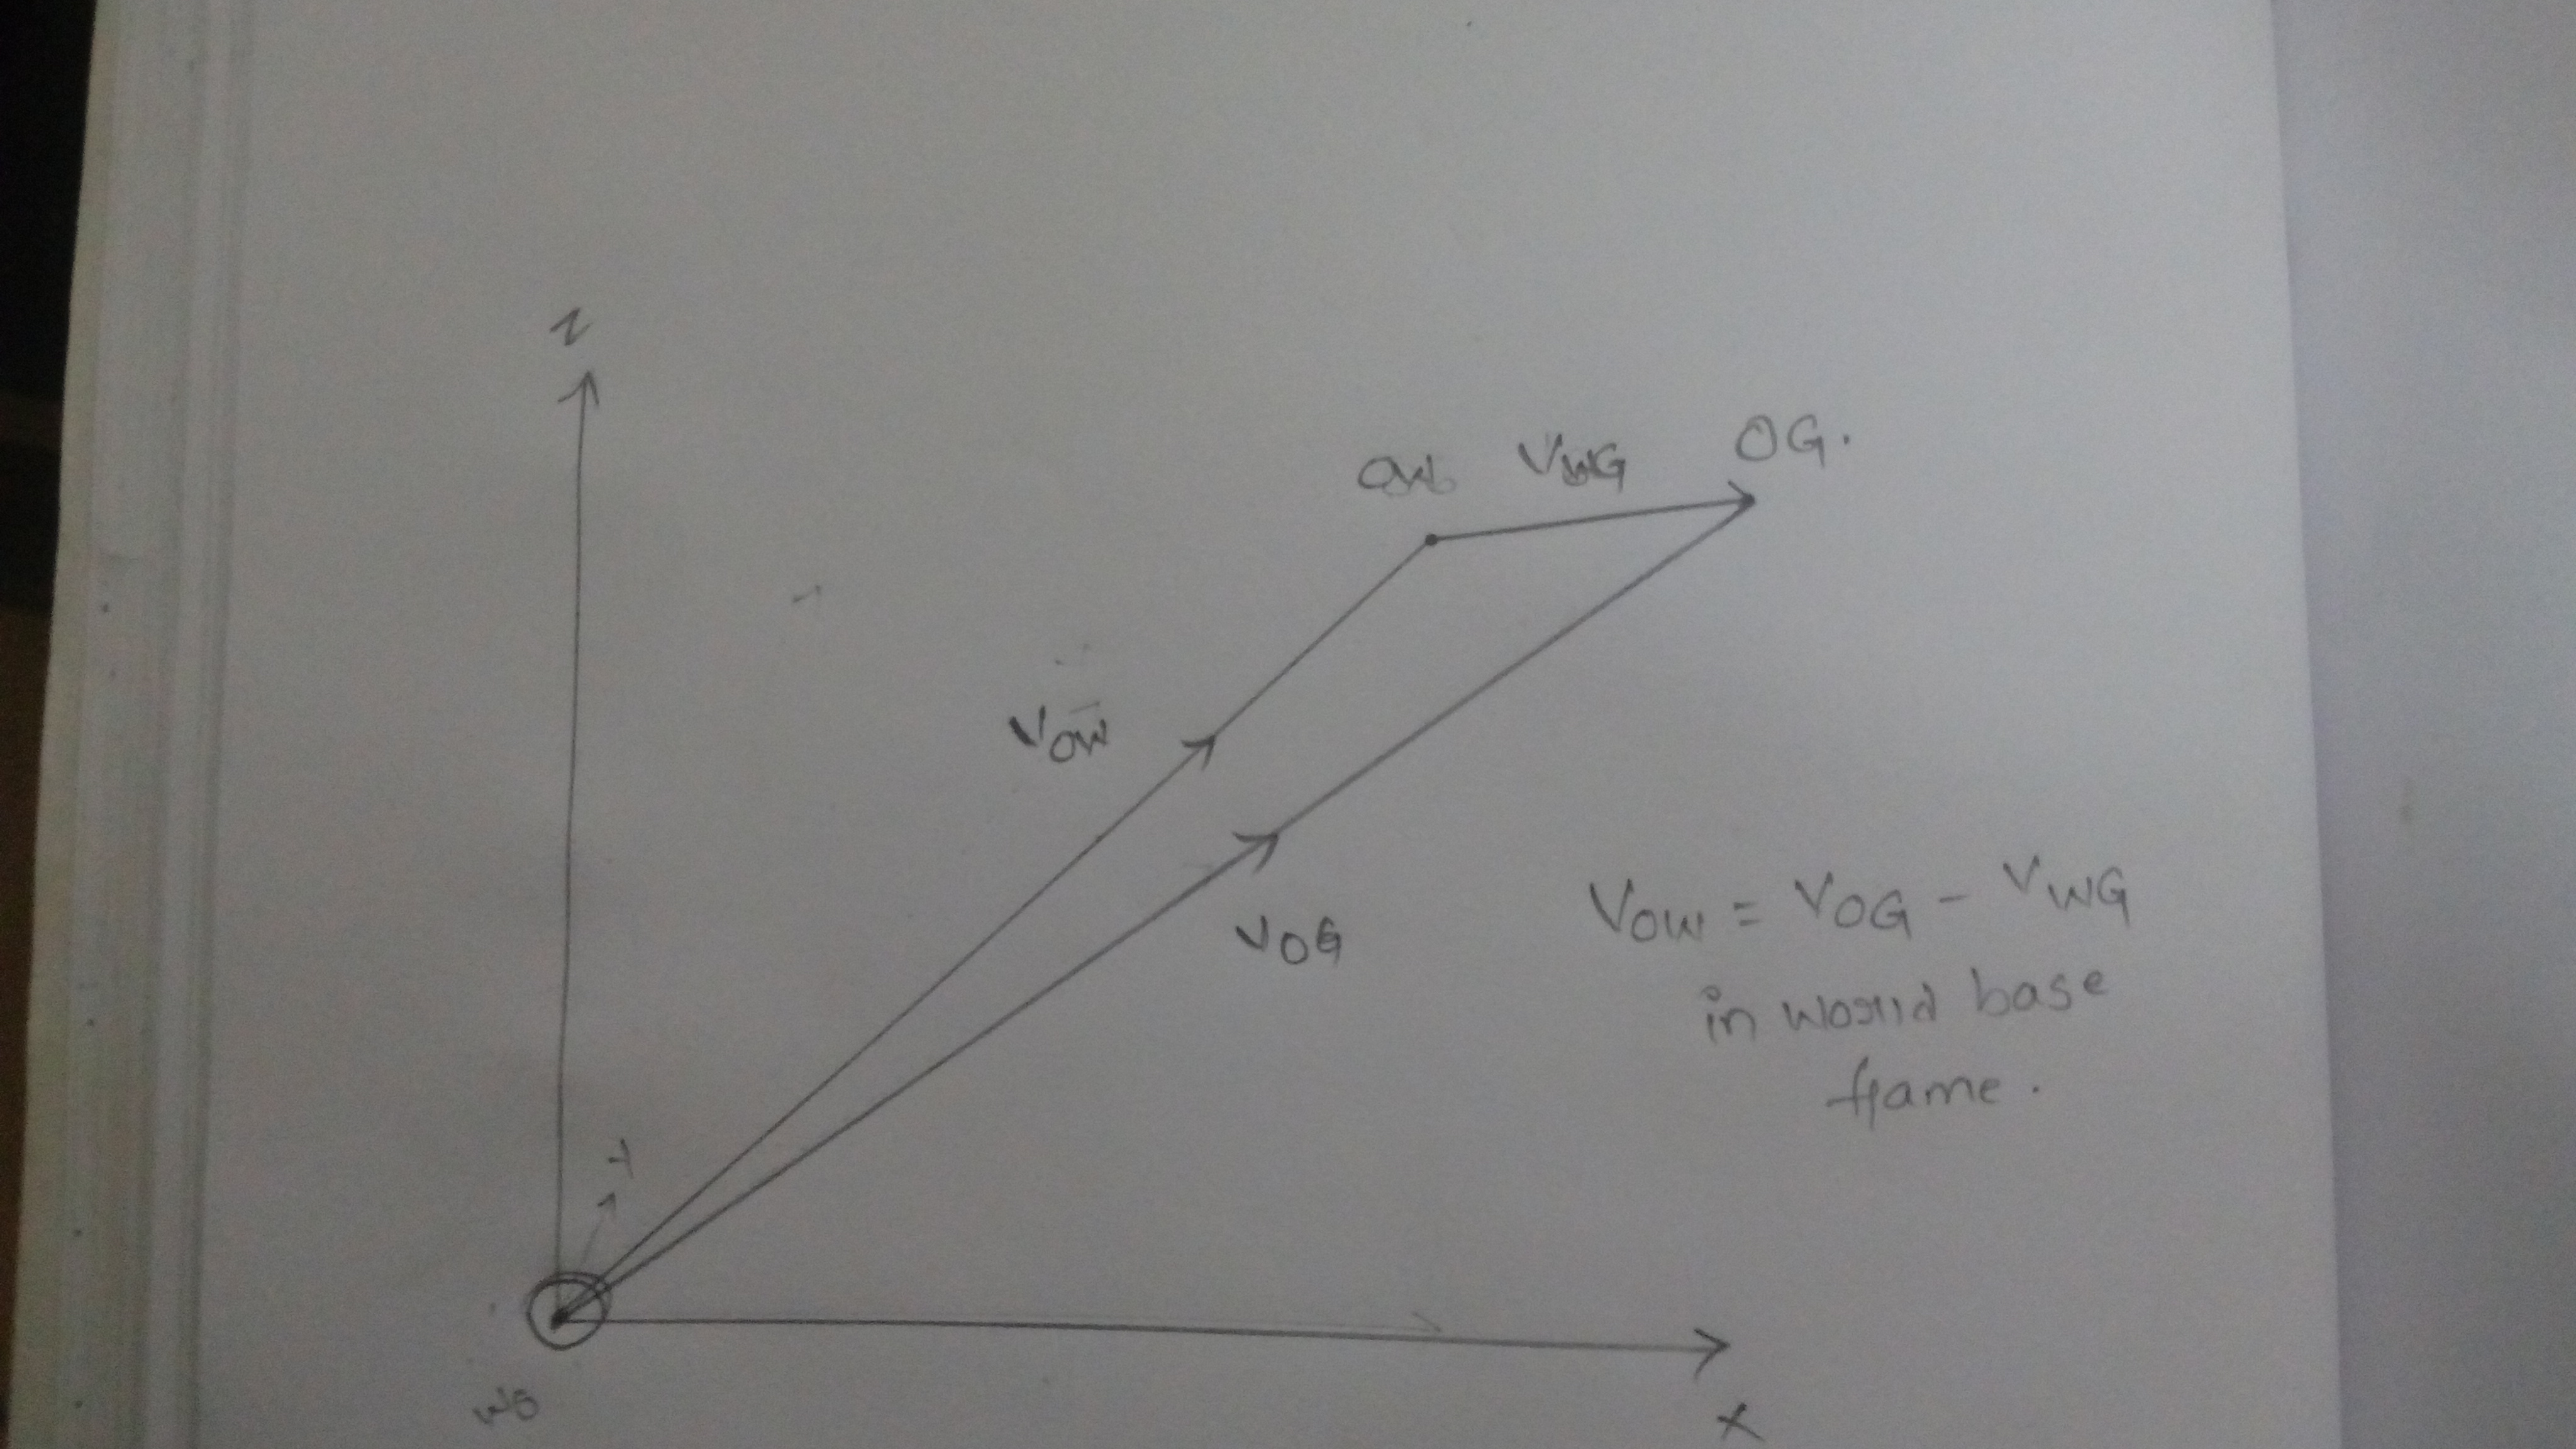 Z
OW VWG OG.
VOW
VOG
VOW = VOG - VWG
in world base
frame.
Y
X